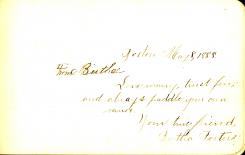 Boston May 8, 1888
Friend Bertha
Love many, trust few
and always paddle your own
canoe.
Your true friend,
Bertha